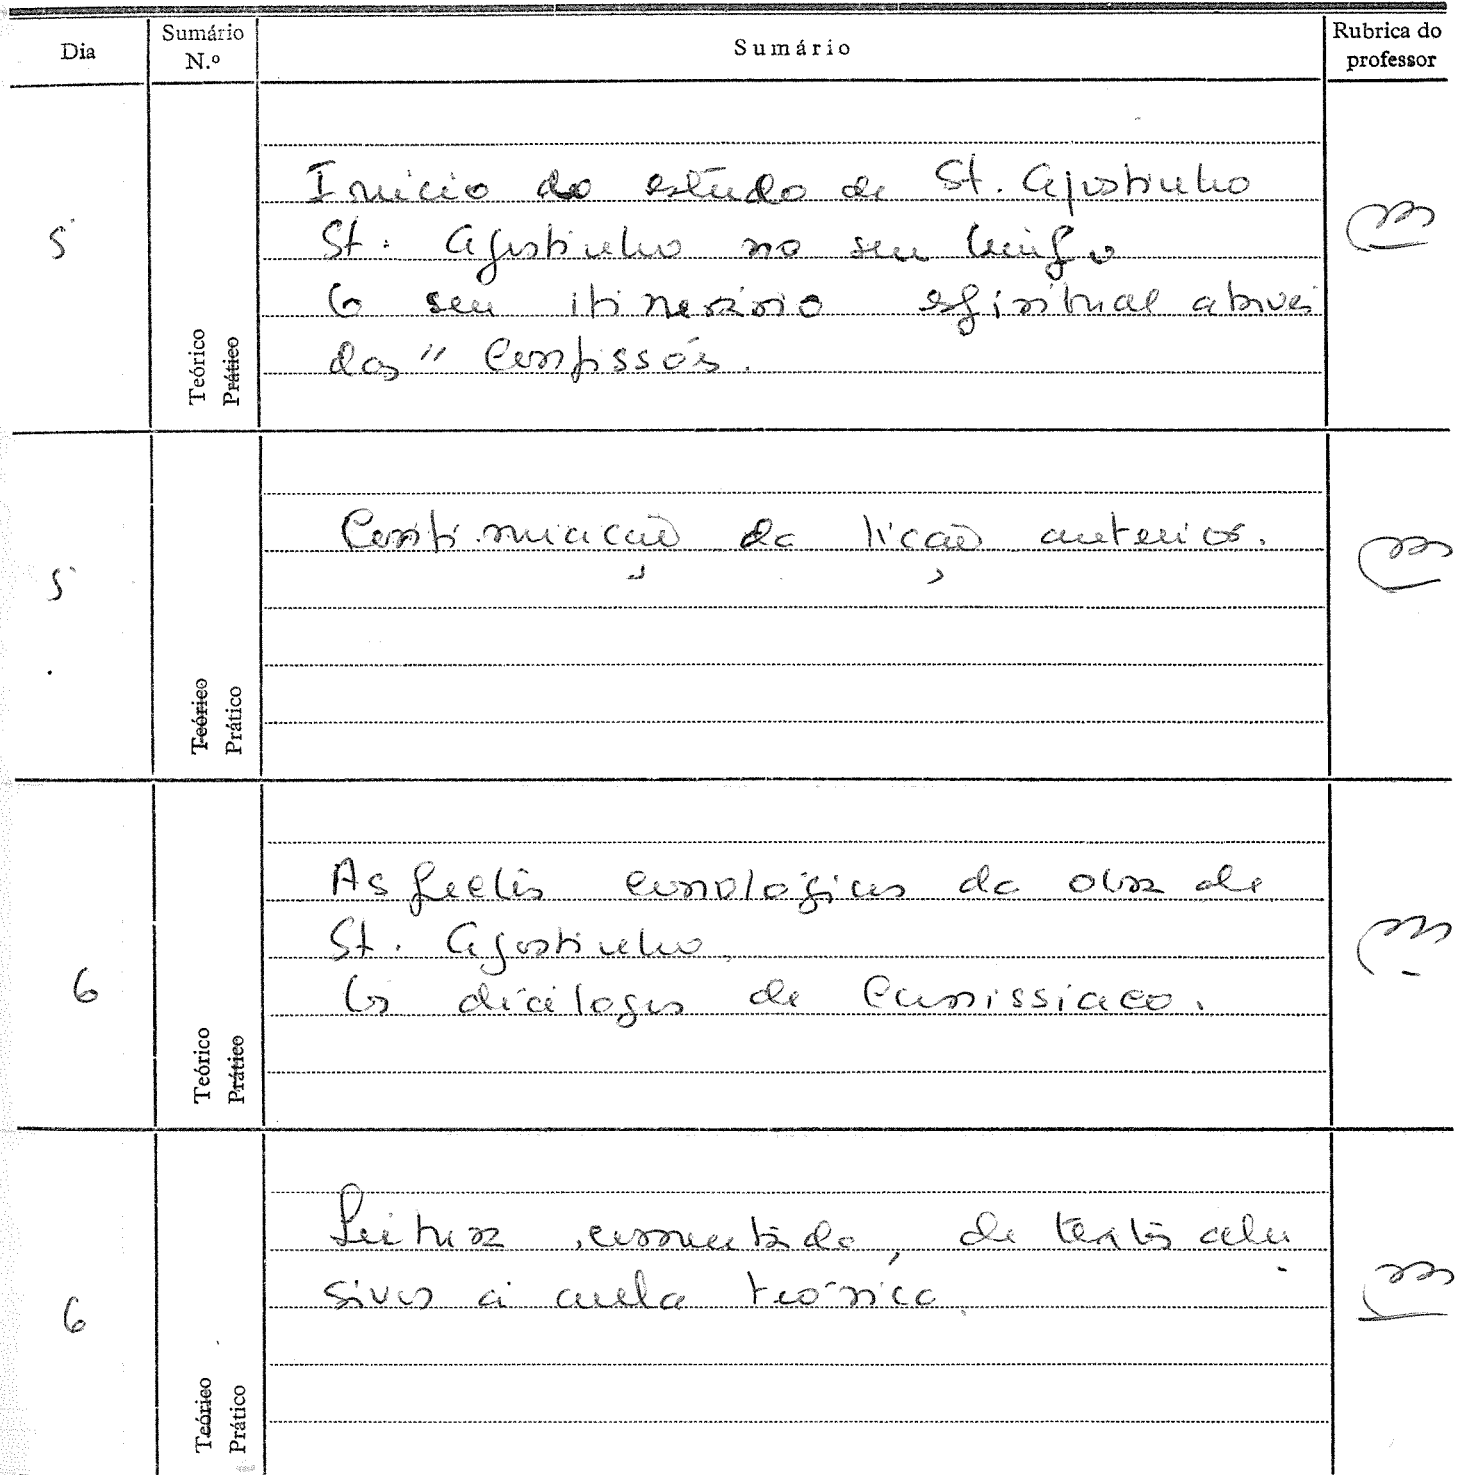 Dia
Sumário N.º
Sumário
Rubrica do professor
5
Teórico
Prático
Início do estudo de St. Agostinho
St. Agostinho no seu tempo
O seu itinerário espiritual através
das "Confissões.
5
Teórico
Prático
Continuação da lição anterior.
6
Teórico
Prático
Aspectos cronológicos da obra de
St. Agostinho.
Os diálogos de Cassissiaco.
6
Teórico
Prático
Leitura, comentada, de textos alu
sivos à aula teórica.